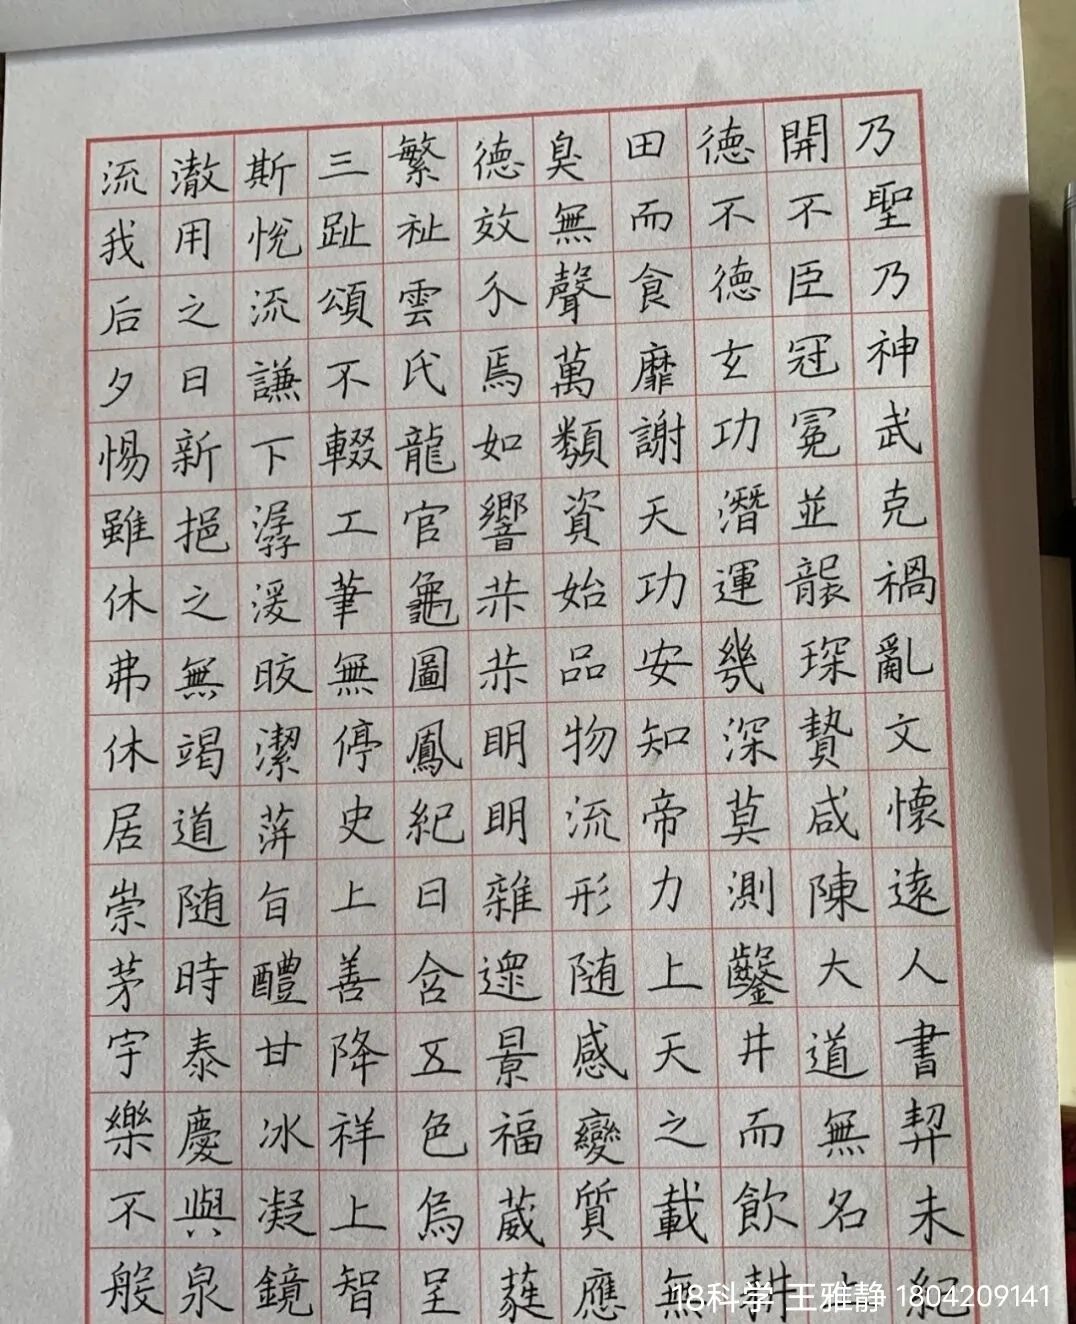 乃聖乃神武克禍亂文懷遠人書契未紀
開不臣冠冕並襲琛贄咸陳大道無名上
德不德玄功潛運幾深莫測鑿井而飲耕
田而食靡謝天功安知帝力上天之載無
臭無聲萬類資始品物流形随感變質應
德效尒焉如響赫赫明明雜遝景福葳蕤
繁祉雲氏龍官龜圖鳳紀日含五色烏呈
三趾頌不輟工筆無停史上善降祥上智
斯悅流謙下潺湲皎潔蓱旨醴甘冰凝鏡
澈用之日新挹之無竭道随時泰慶與泉
流我后夕惕雖休弗休居崇茅宇樂不般
18科学 王雅静 1804209141